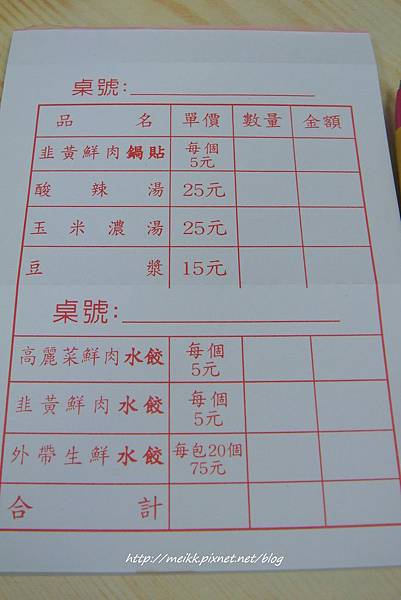 桌號:
品名 單價 數量 金額
韭黃鮮肉鍋貼 每個5元
酸辣湯 25元
玉米濃湯 25元
豆漿 15元
桌號:
高麗菜鮮肉水餃 每個5元
韭黃鮮肉水餃 每個5元
外帶生鮮水餃 每包20個75元
合計
http://meikk.pixnet.net/blog